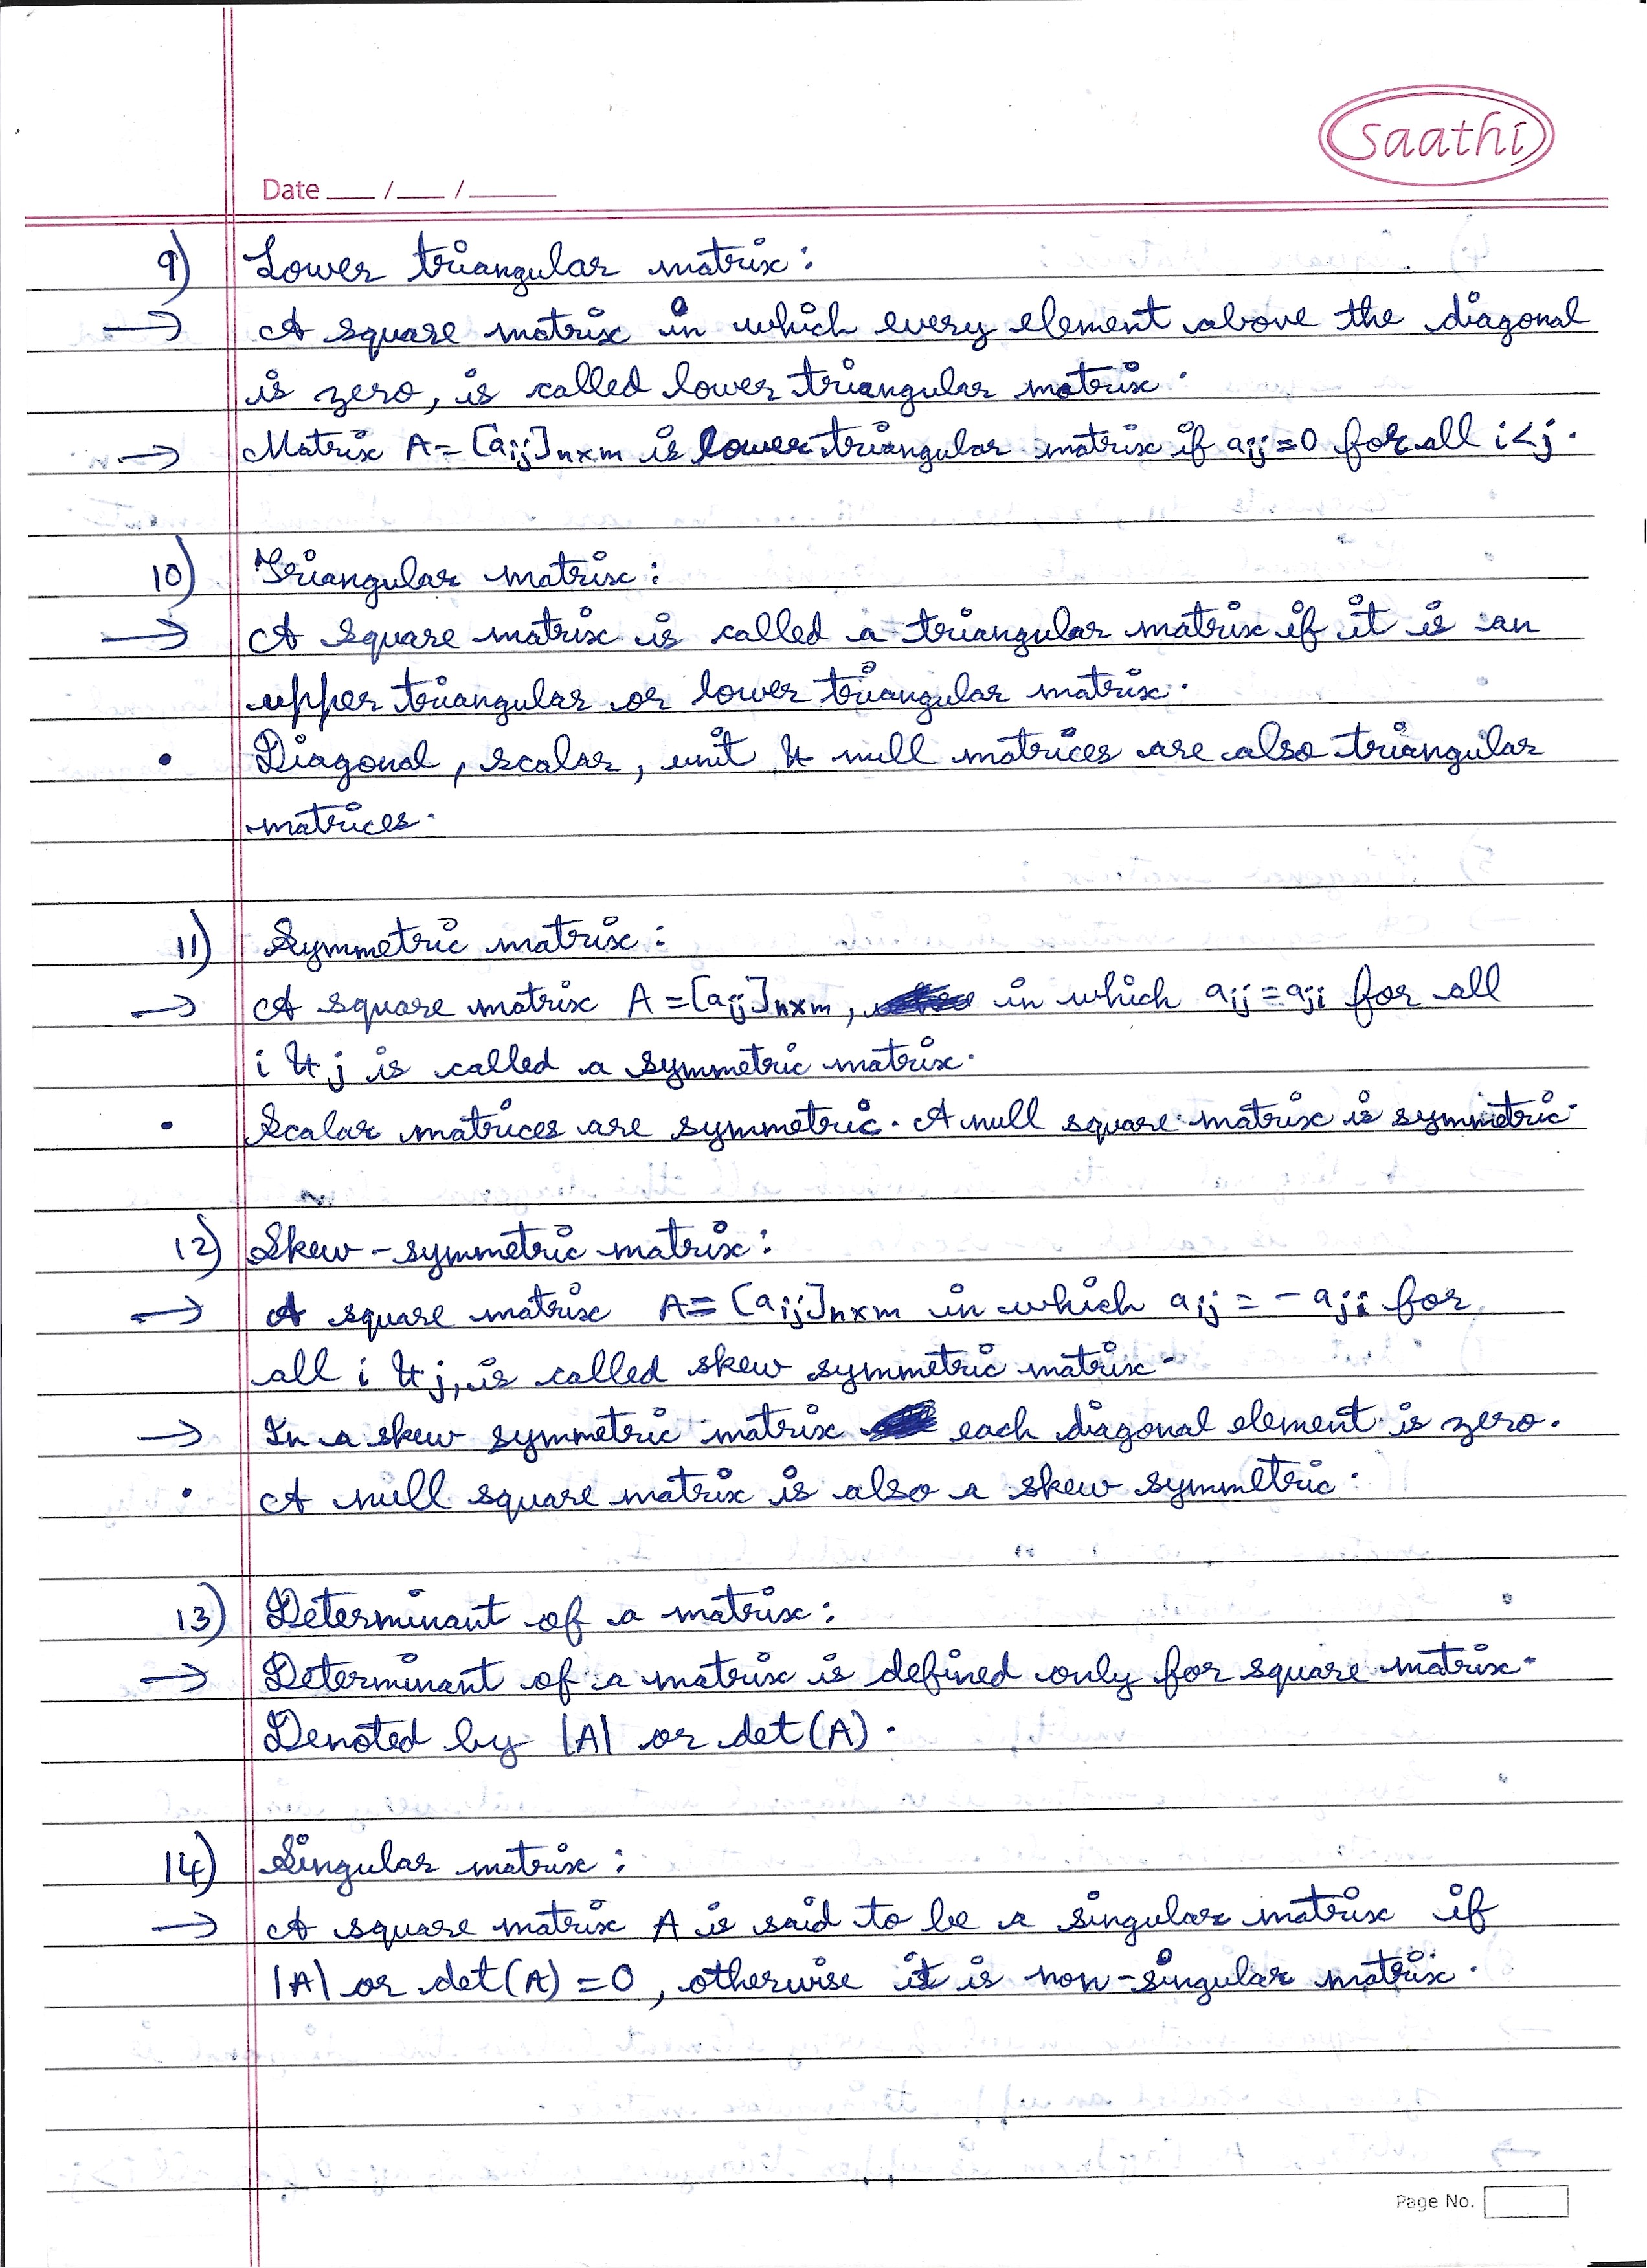 saathi
Date ___ /___ /_____
9) Lower triangular matrix :
→ A square matrix in which every element above the diagonal
is zero, is called lower triangular matrix.
→ Matrix A = [aij]n×m is lower triangular matrix if aij = 0 for all i<j.
10) Triangular matrix :
→ A square matrix is called a triangular matrix if it is an
upper triangular or lower triangular matrix.
• Diagonal, scalar, unit & null matrices are also triangular
matrices.
11) Symmetric matrix :
→ A square matrix A = [aij]n×m, in which aij = aji for all
i & j is called a symmetric matrix.
• Scalar matrices are symmetric. A null square matrix is symmetric.
12) Skew-symmetric matrix :
→ A square matrix A = [aij]n×m in which aij = - aji for
all i & j, is called skew symmetric matrix.
→ In a skew symmetric matrix each diagonal element is zero.
• A null square matrix is also a skew symmetric.
13) Determinant of a matrix :
→ Determinant of a matrix is defined only for square matrix.
Denoted by |A| or det(A).
14) Singular matrix :
→ A square matrix A is said to be a singular matrix if
|A| or det(A) = 0, otherwise it is non-singular matrix.
Page No.